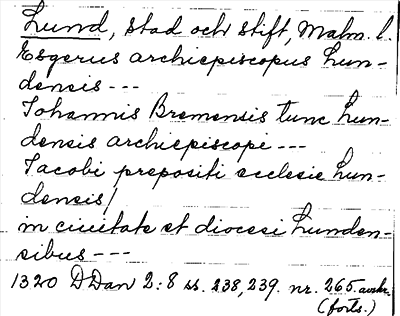 Lund, stad och stift, Malm. l.
Esgerus archiepiscopus Lun-
densis ---
Iohannis Bremensis tunc Lun-
densis archiepiscopi ---
Iacobi prepositi ecclesie Lun-
densis/
in ciuitate et diocesi Lunden-
sibus ---
1320 DDan 2:8 ss. 238, 239. nr. 265. avskr.
(forts.)